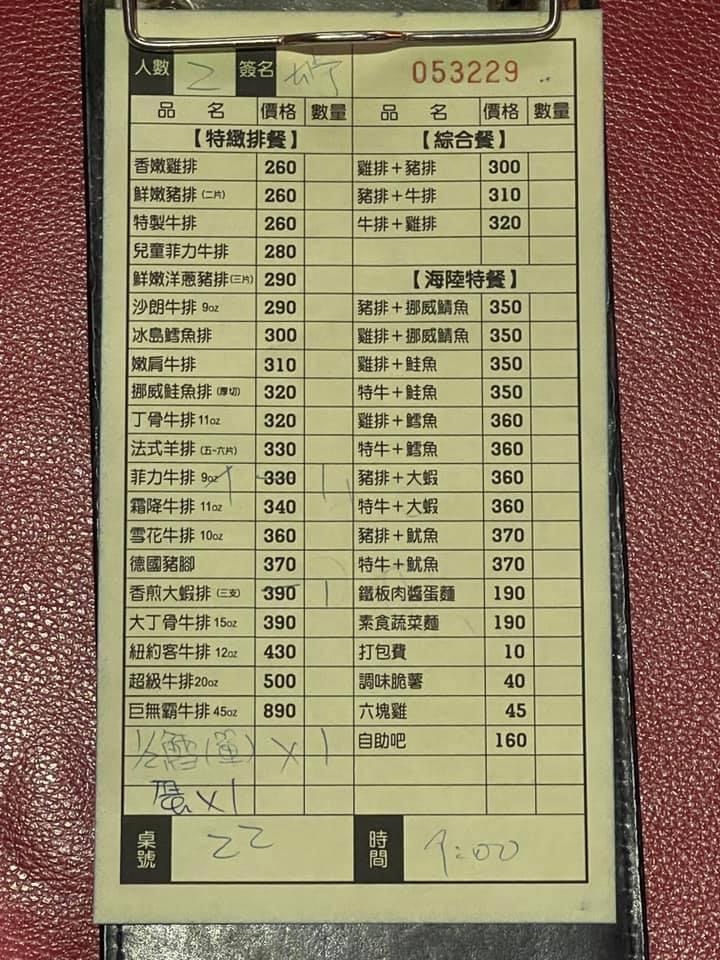 人數 2 簽名 053229
品 名 價格 數量 品 名 價格 數量
【特緻排餐】 【綜合餐】
香嫩雞排 260 雞排+豬排 300
鮮嫩豬排(二片) 260 豬排+牛排 310
特製牛排 260 牛排+雞排 320
兒童菲力牛排 280
鮮嫩洋蔥豬排(三片) 290 【海陸特餐】
沙朗牛排 9oz 290 豬排+挪威鯖魚 350
冰島鱈魚排 300 雞排+挪威鯖魚 350
嫩肩牛排 310 雞排+鮭魚 350
挪威鮭魚排(厚切) 320 特牛+鮭魚 350
丁骨牛排 11oz 320 雞排+鱈魚 360
法式羊排(五~六片) 330 特牛+鱈魚 360
菲力牛排 9oz 330 1 豬排+大蝦 360
霜降牛排 11oz 340 特牛+大蝦 360
雪花牛排 10oz 360 豬排+魷魚 370
德國豬腳 370 特牛+魷魚 370
香煎大蝦排(三支) 390 1 鐵板肉醬蛋麵 190
大丁骨牛排 15oz 390 素食蔬菜麵 190
紐約客牛排 12oz 430 打包費 10
超級牛排20oz 500 調味脆薯 40
巨無霸牛排 45oz 890 六塊雞 45
1/2鱈(單) X 1 自助吧 160
X 1
桌號 22 時間